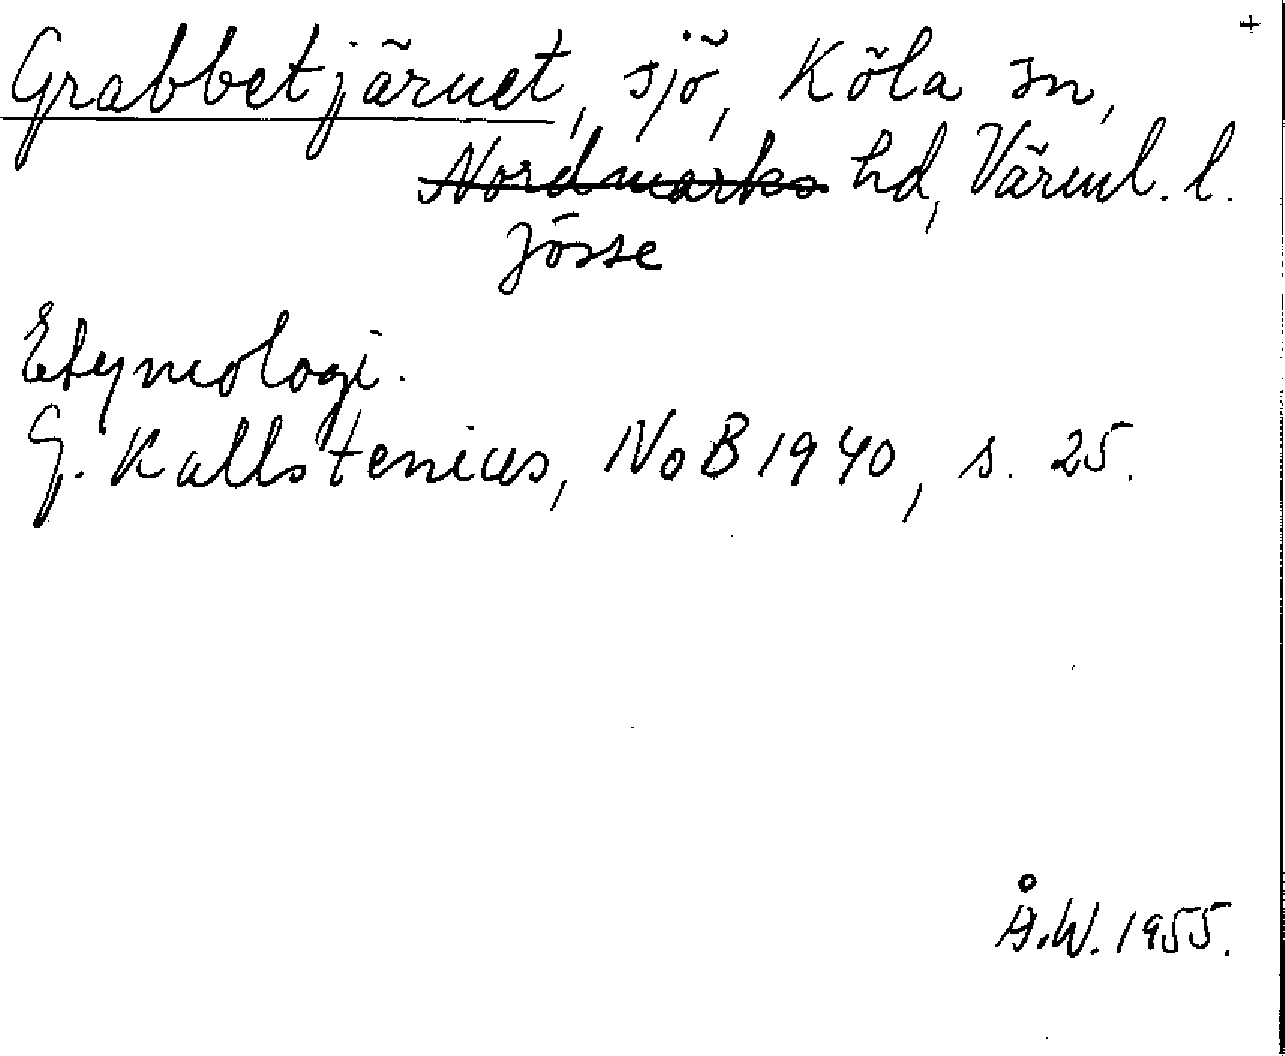 +
Grabbetjärnet, sjö, Köla sn,
~~Nordmarks~~ hd, Värml. l.
Jösse
Etymologi.
G. Kallstenius, NoB 1940, s. 25.
Å.W. 1955.